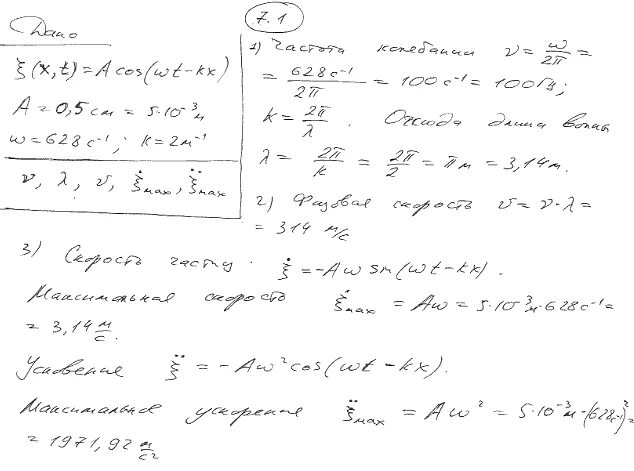 7.1
Дано
ξ(x,t)=A cos(ωt-kx)
A=0,5см=5·10⁻³м
ω=628с⁻¹; k=2м⁻¹
ν, λ, v, ξ̇max, ξ̈max
1) Частота колебании ν = ω/2π =
= 628с⁻¹/2π = 100с⁻¹ = 100Гц;
k = 2π/λ . Отсюда длина волны
λ = 2π/k = 2π/2 = πм = 3,14м.
2) Фазовая скорость v = ν·λ =
= 314 м/с
3) Скорость частиц. ξ̇ = -Aω sin(ωt-kx).
Максимальная скорость ξ̇max = Aω = 5·10⁻³м·628с⁻¹=
= 3,14 м/с.
Ускорение ξ̈ = -Aω²cos(ωt-kx).
Максимальное ускорение ξ̈max = Aω² = 5·10⁻³м·(628с⁻¹)²=
= 1971,92 м/с²